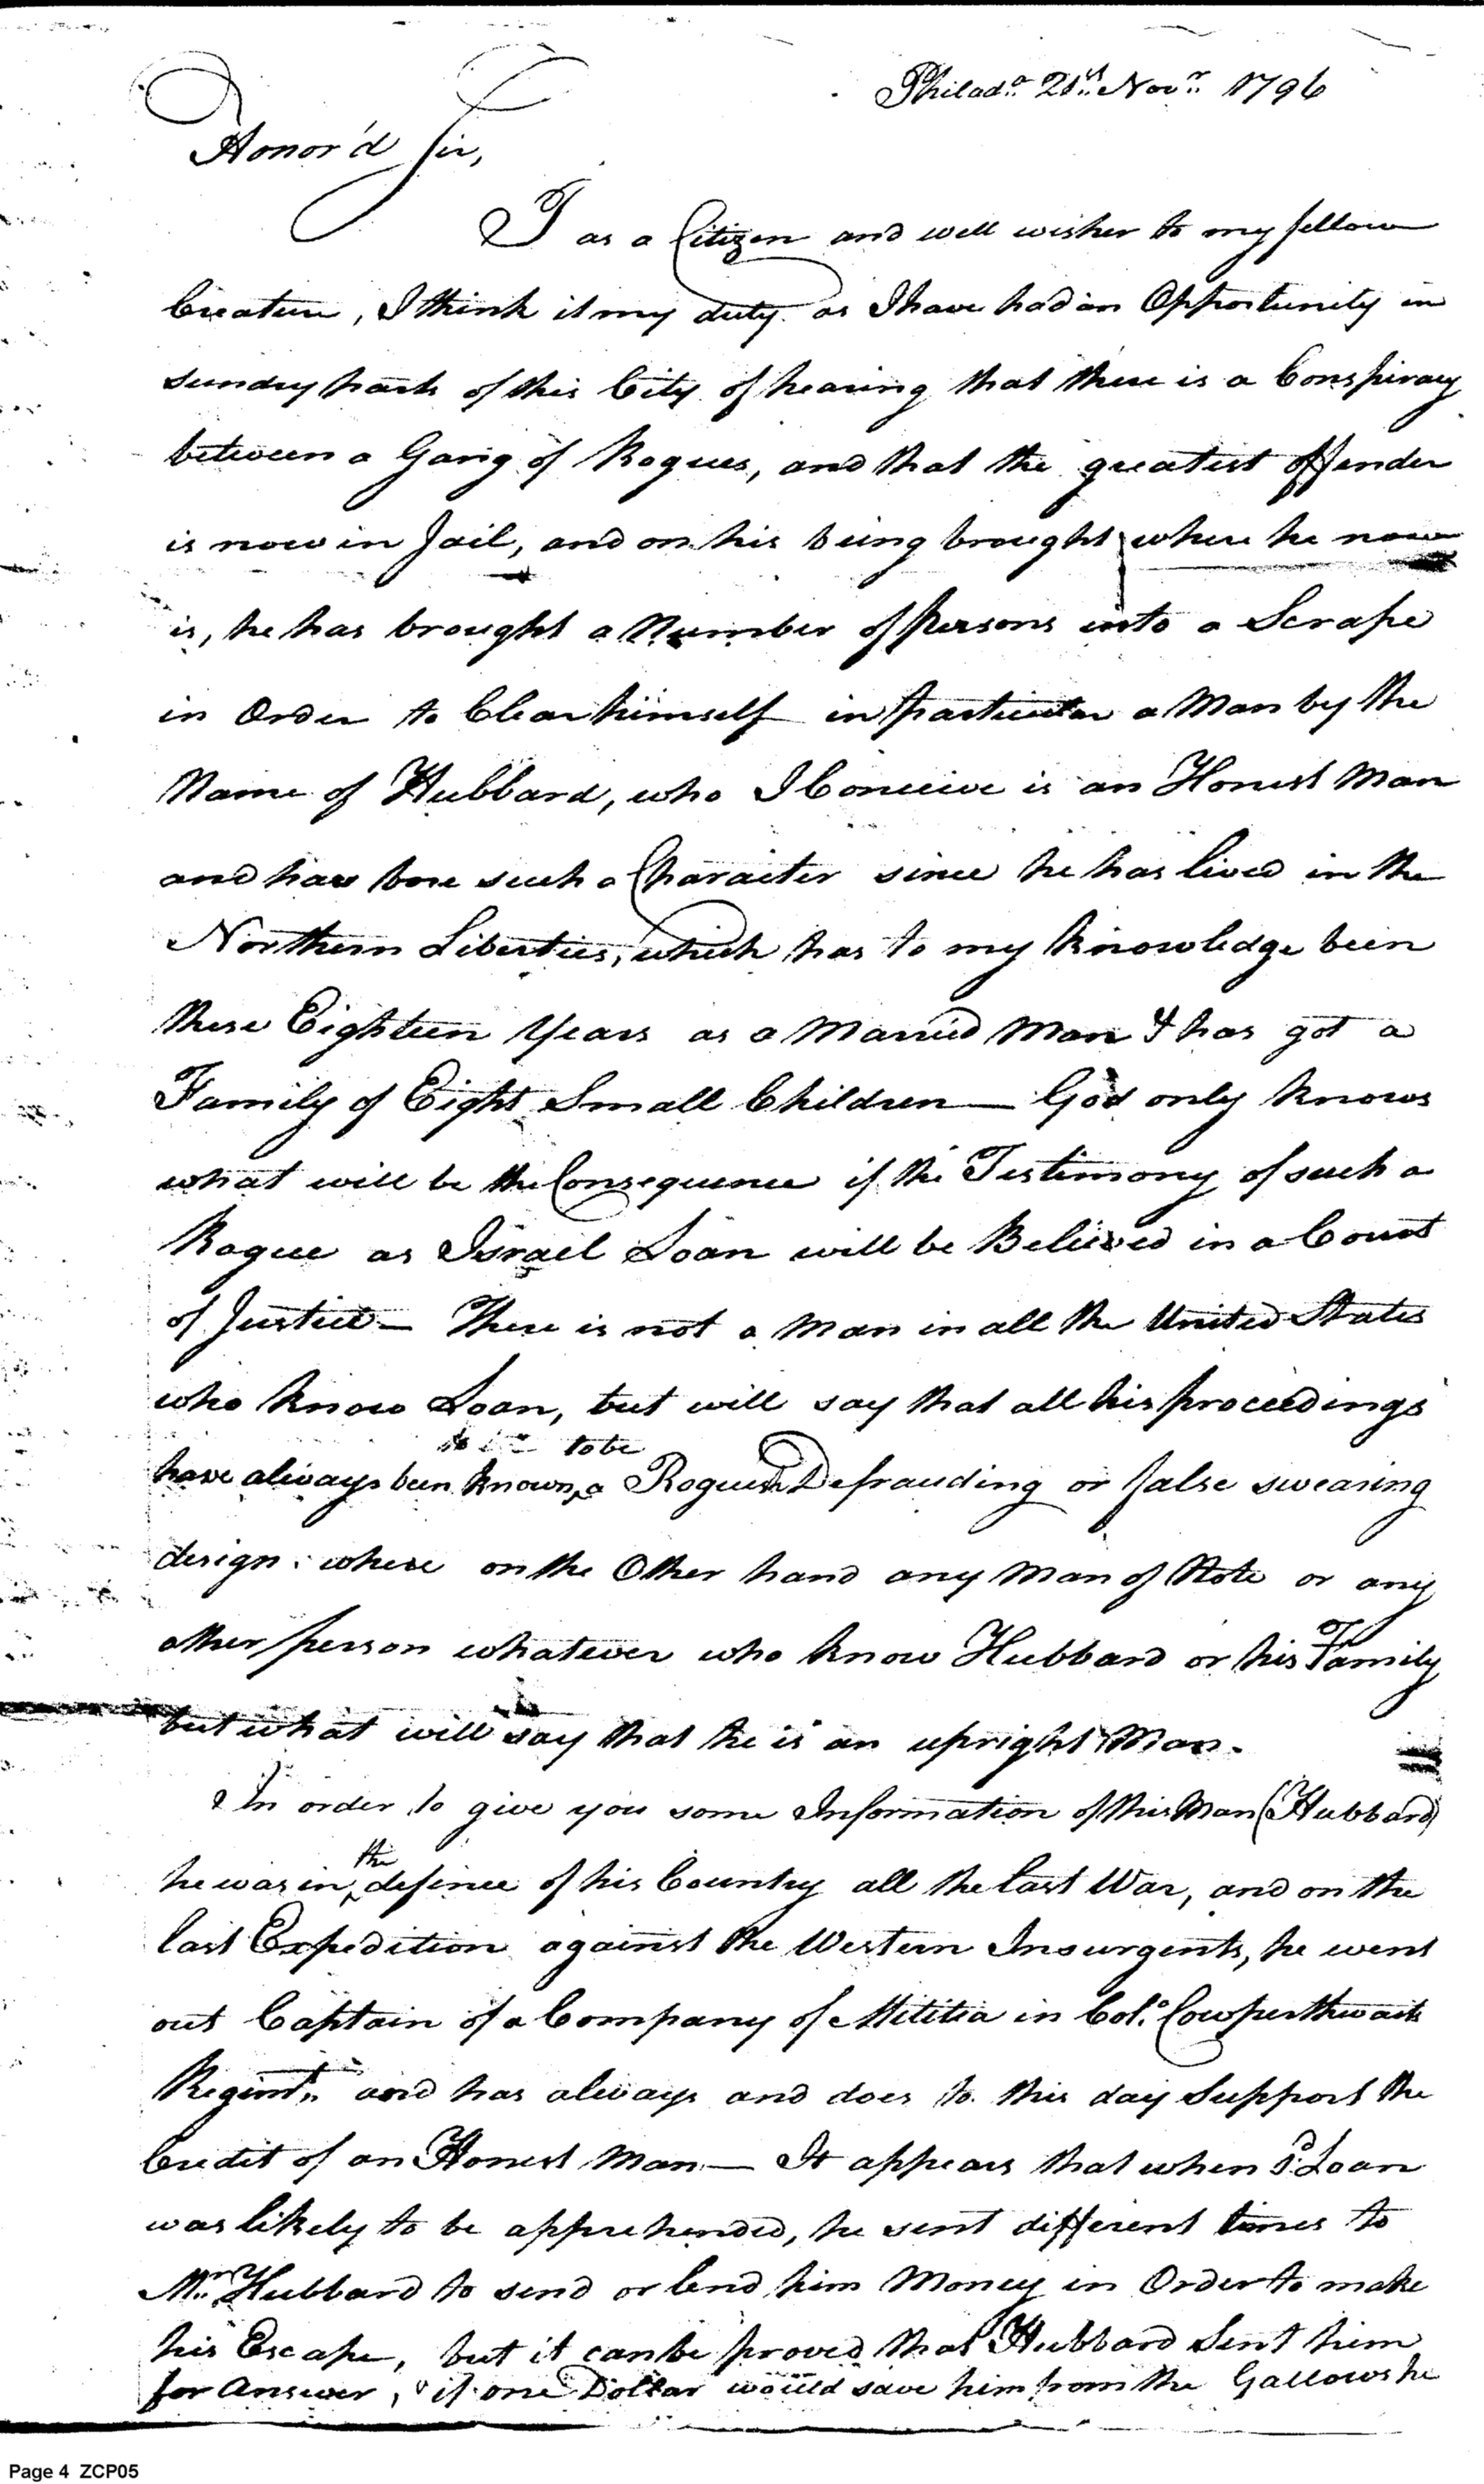 Philad.ª 21st Nov.r 1796
Honor'd Sir,
I as a Citizen and well wisher to my fellow
Creature, I think it my duty as I have had an Opportunity in
sundry parts of this City of hearing that there is a Conspiracy
between a Gang of Rogues, and that the greatest offender
is now in Jail, and on his being brought where he now
is, he has brought a Number of Persons into a Scrape
in Order to Clear himself in particular a Man by the
Name of Hubbard, who I Conceive is an Honest Man
and has bore such a Character since he has lived in the
Northern Liberties, which has to my knowledge been
these Eighteen Years as a Married Man & has got a
Family of Eight Small Children — God only knows
what will be the Consequence if the Testimony of such a
Rogue as Israel Loan will be Believed in a Court
of Justice — There is not a Man in all the United States
who know Loan, but will say that all his proceedings
to be
have always been known a Rogueish Defrauding or false swearing
design: where on the Other hand any Man of Note or any
other person whatever who know Hubbard or his Family
but what will say that he is an upright Man.
In order to give you some Information of this Man (Hubbard)
the
he was in defence of his Country all the last War, and on the
last Expedition against the Western Insurgents, he went
out Captain of a Company of Militia in Col.º Cowperthwaits
Regimt. and has always and does to this day Support the
Credit of an Honest Man — It appears that when sd. Loan
was likely to be apprehended, he sent different times to
Mr. Hubbard to send or lend him Money in Order to make
his Escape, but it can be proved that Hubbard Sent him
for Answer, if one Dollar would save him from the Gallows he
Page 4 ZCP05